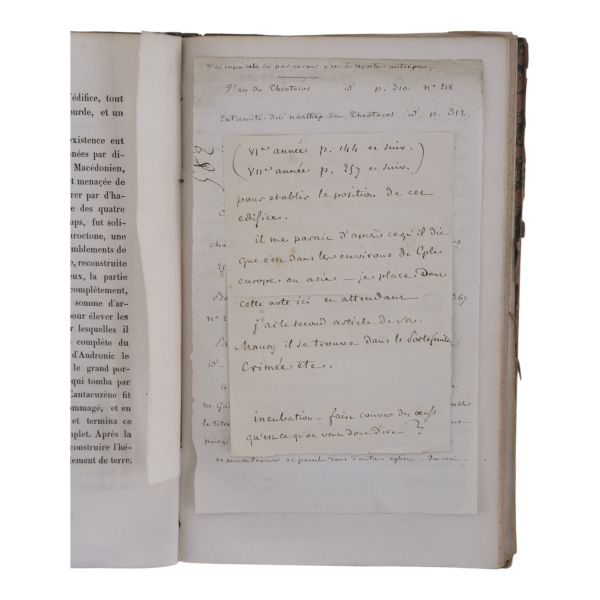 l'édifice, tout
ourde, et un
existence eut
onées par di-
Macédonien,
et menacée de
rer par d'ha-
e des quatre
ps, fut soli-
uroctone, une
emblements de
e, reconstruite
eux, la partie
complètement,
somme d'ar-
pour élever les
r lesquelles il
complète du
d'Andronic le
le grand por-
qui tomba par
Cantacuzène fit
ommagé, et en
et termina ce
plet. Après la
construire l'hé-
lement de terre.
J'ai copié cela ici par erreur
Plan du Theotocos id p. 310. n° 218.
Extrémité du narthex du Theotocos id. p. 312.
582
(VIme année p. 144 et suiv.)
(VIIme année p. 257 et suiv.)
pour etablir la position de cet
edifice.
il me parait d'après ce qu'il dit
que c'en dans les environs de Cple
europe ou asie – je place donc
cette note ici en attendant
j'ai le second article de M.
Maury il se trouve dans le Portefeuille
Crimée etc.
incubation – faire couver des oeufs
qu'est ce qu'on veut donc dire ?
367
25
n° 2
id.
M. Ga
le titre
puisqu
en trouver de pareils dans d'autres eglises